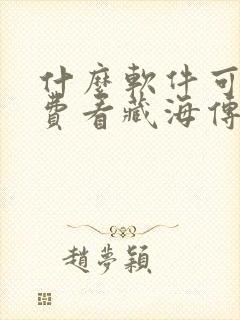 什麼軟件可
費看藏海傳
趙夢穎